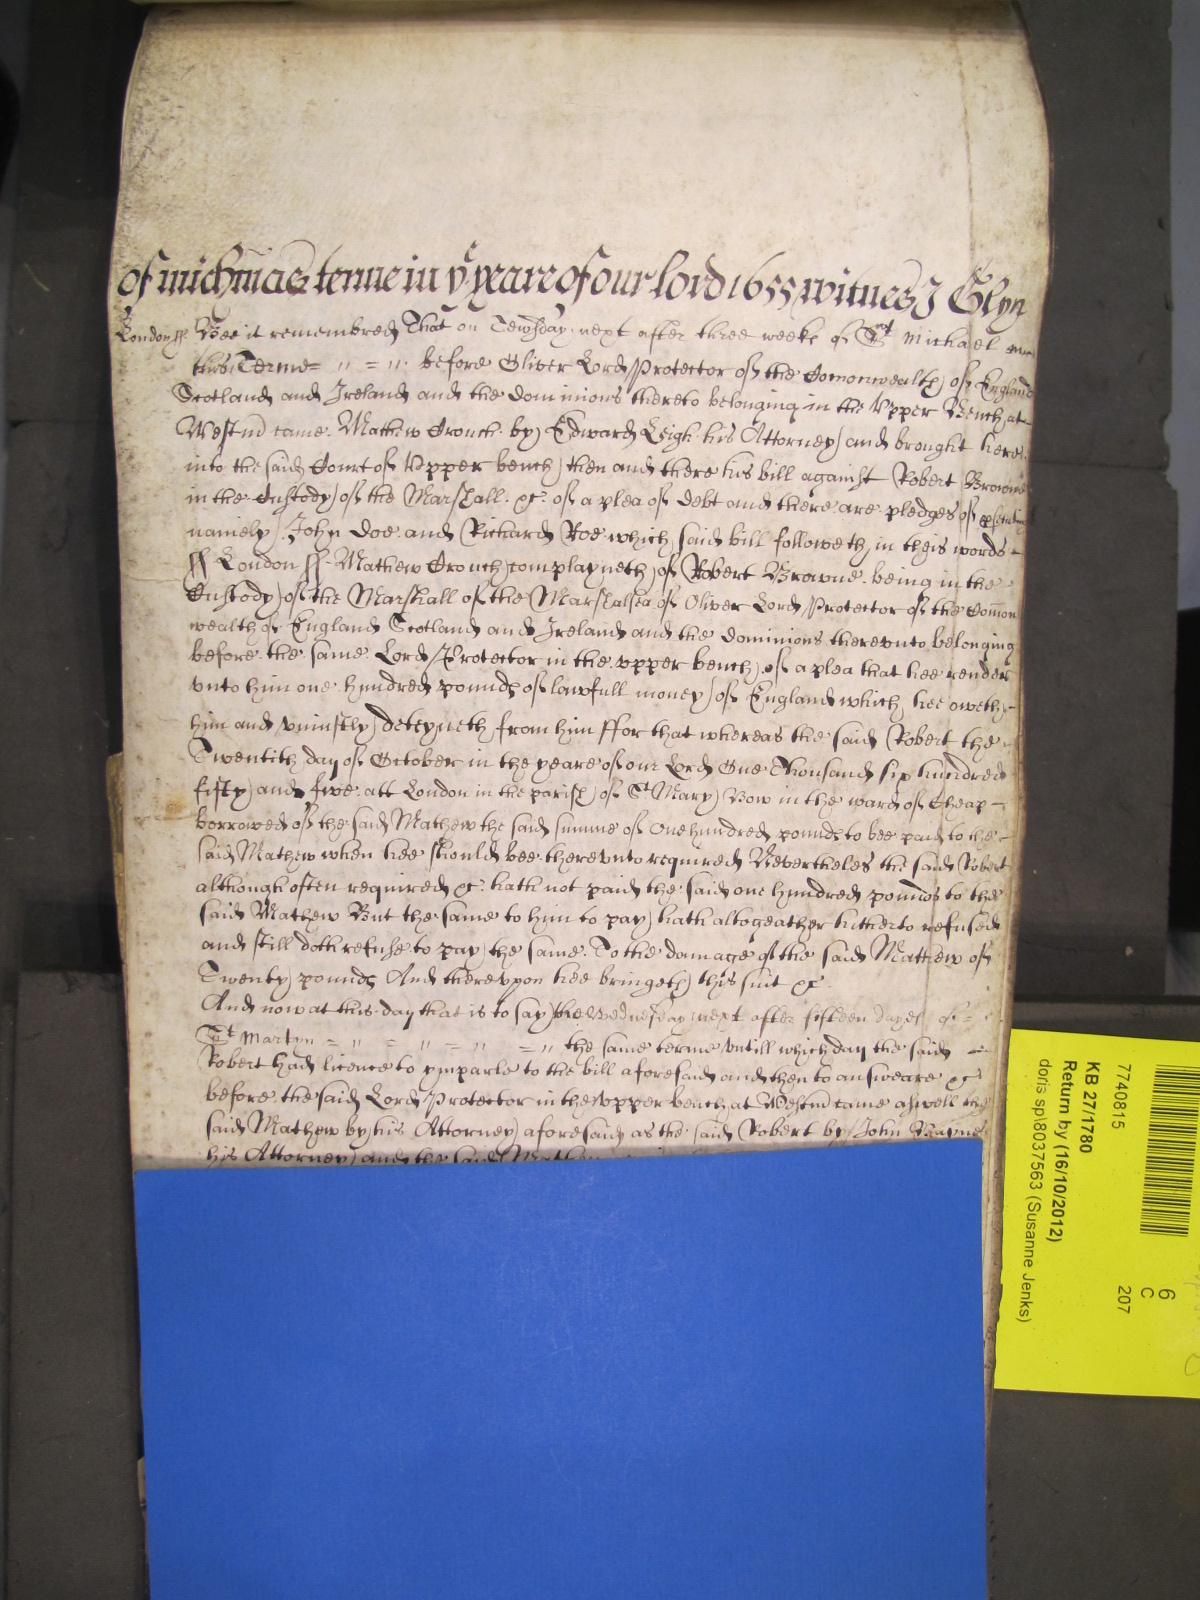 of michmas terme in ye yeare of our lord 1655 witnes J Glyn
London ss Bee it remembred That on Tewsday next after three weeks of St Michael
this Terme = " = " before Oliver Lord Protector of the Comonwealth of England
Scotland and Ireland and the dominions thereto belonging in the Vpper Bench at
Westmr came Mathew Crouch by Edward Leigh his Attorney and brought here
into the said Court of Vpper bench then and there his bill against Robert Browne
in the Custody of the Marshall &c of a plea of debt and there are pledges of
namely John Doe and Richard Roe which said bill followeth in theis words
ss London ss Mathew Crouch complayneth of Robert Browne being in the
Custody of the Marshall of the Marshalsea of Oliver Lord Protector of the Comon
wealth of England Scotland and Ireland and the dominions therevnto belonging
before the same Lord Protector in the vpper bench of a plea that hee render
vnto him one hundred pounds of lawfull money of England which hee oweth
him and vniustly deteyneth from him ffor that whereas the said Robert the
Twentith day of October in the yeare of our Lord One Thousand six hundred
fifty and five att London in the parish of St Mary Bow in the ward of Cheap
borrowed of the said Mathew the said summe of one hundred pounds to bee paid to the
said Mathew when hee should bee therevnto required Nevertheles the said Robert
although often required &c hath not paid the said one hundred pounds to the
said Mathew But the same to him to pay hath altogeather hitherto refused
and still doth refuse to pay the same To the damage of the said Mathew of
Twenty pounds And therevpon hee bringeth this suit &c
And now at this day that is to say the Wednesday next after fifteen dayes of
St Martyn = " = " = " = " the same terme vntill which day the said
Robert had licence to ymparle to the bill aforesaid and then to answeare &c
before the said Lord Protector in the vpper bench at Westmr came aswell the
said Mathew by his Attorney aforesaid as the said Robert by John Bayne
his Attorney and the said Mathew
7740815
KB 27/1780
Return by (16/10/2012)
doris sp\8037563 (Susanne Jenks)
6
C
207